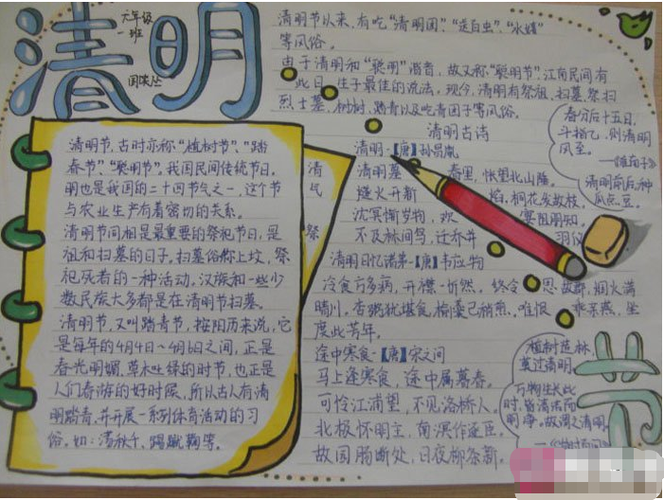 清明
六年级
一班
清明节以来，有吃"清明团"、"送白虫"、
等风俗。
由于清明和"聪明"谐音，故又称"聪明节"，江南民间有
此日生子最佳的说法，现今，清明有祭祖，扫墓，祭扫
烈士墓，植树，踏青以及吃青团子等风俗。
清明古诗
清明·【唐】孙昌胤
清明墓 春里，怅望北山陲。
燧火开新 焰，桐花发故枝。
沈冥惭岁物，欢 宴阻朋知。
不及林间鸟，迁乔并 羽仪
清明日忆诸弟·【唐】韦应物
冷食方多病，开襟一忻然。终令 思故郡，烟火满
晴川。杏粥犹堪食，榆羹已稍煎。唯恨 乖亲燕，坐
度此芳年。
途中寒食·【唐】宋之问
马上逢寒食，途中属暮春。
可怜江浦望，不见洛桥人。
北极怀明主，南溟作逐臣。
故园肠断处，日夜柳条新。
清明节，古时亦称"植树节"、"踏
春节"、"聪明节"。我国民间传统节日。
明也是我国的二十四节气之一，这个节
与农业生产有着密切的关系。
清明节间相是最重要的祭祀节日，是
祖和扫墓的日子。扫墓俗称上坟，祭
祀死者的一种活动。汉族和一些少
数民族大多都是在清明节扫墓。
清明节，又叫踏青节，按阳历来说，它
是每年的4月4日～4月6日之间，正是
春光明媚，草木吐绿的时节，也正是
人们春游的好时展，所以古人有清
明踏青，并开展一系列体育活动的习
俗。如：荡秋千，踢蹴鞠等。
清
气
祭
春分后十五日，
斗指乙，则清明
风至。
—《淮南子》
清明前后种
瓜点豆。
植树造林，
莫过清明。
万物生长此
时，皆清洁而
明净。故谓之清明。
节